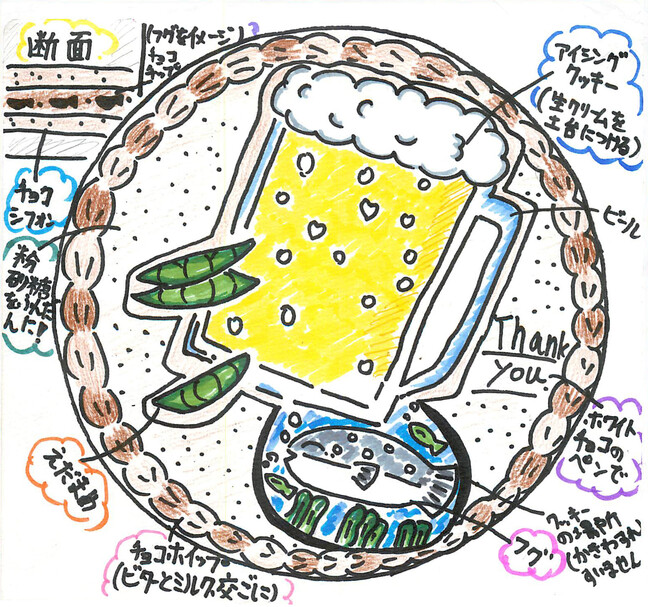 断面
(フグをイメージ)
チョコ
チップ
アイシング
クッキー
(生クリームを
土台につける)
チョコ
シフォン
ビール
粉
砂糖
をふんだ
んに!
Thank
you
ホワイト
チョコの
ペンで
えだまめ
チョコホイップ
(ビターとミルク交ごに)
フグ
クッキー
すいません